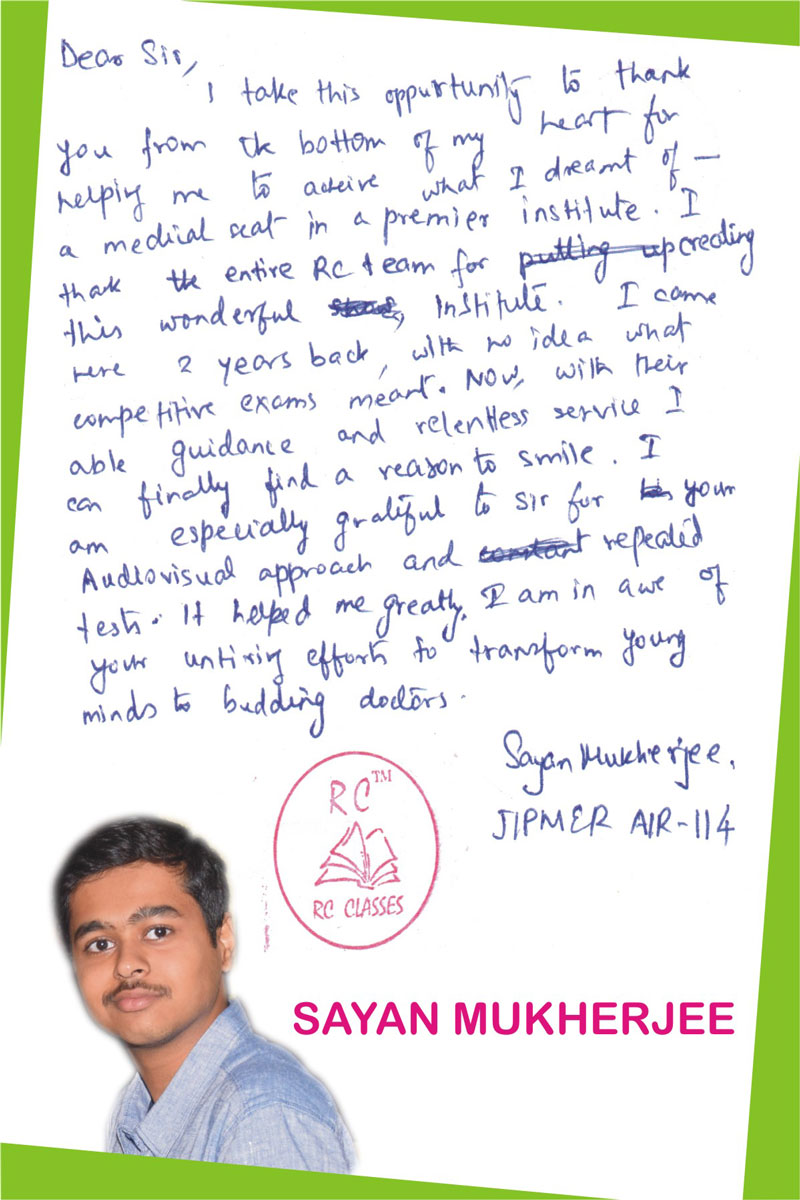 Dear Sir,
I take this oppurtunity to thank
you from the bottom of my heart for
helping me to acheive what I dreamt of —
a medical seat in a premier institute. I
thank the entire RC team for putting up creating
this wonderful institute. I came
here 2 years back, with no idea what
competitive exams meant. Now, with their
able guidance and relentless service I
can finally find a reason to smile. I
am especially grateful to sir for his your
Audiovisual approach and constant repeated
tests. It helped me greatly. I am in awe of
your untiring efforts to transform young
minds to budding doctors.
Sayan Mukherjee.
JIPMER AIR-114
RC™
RC CLASSES
SAYAN MUKHERJEE